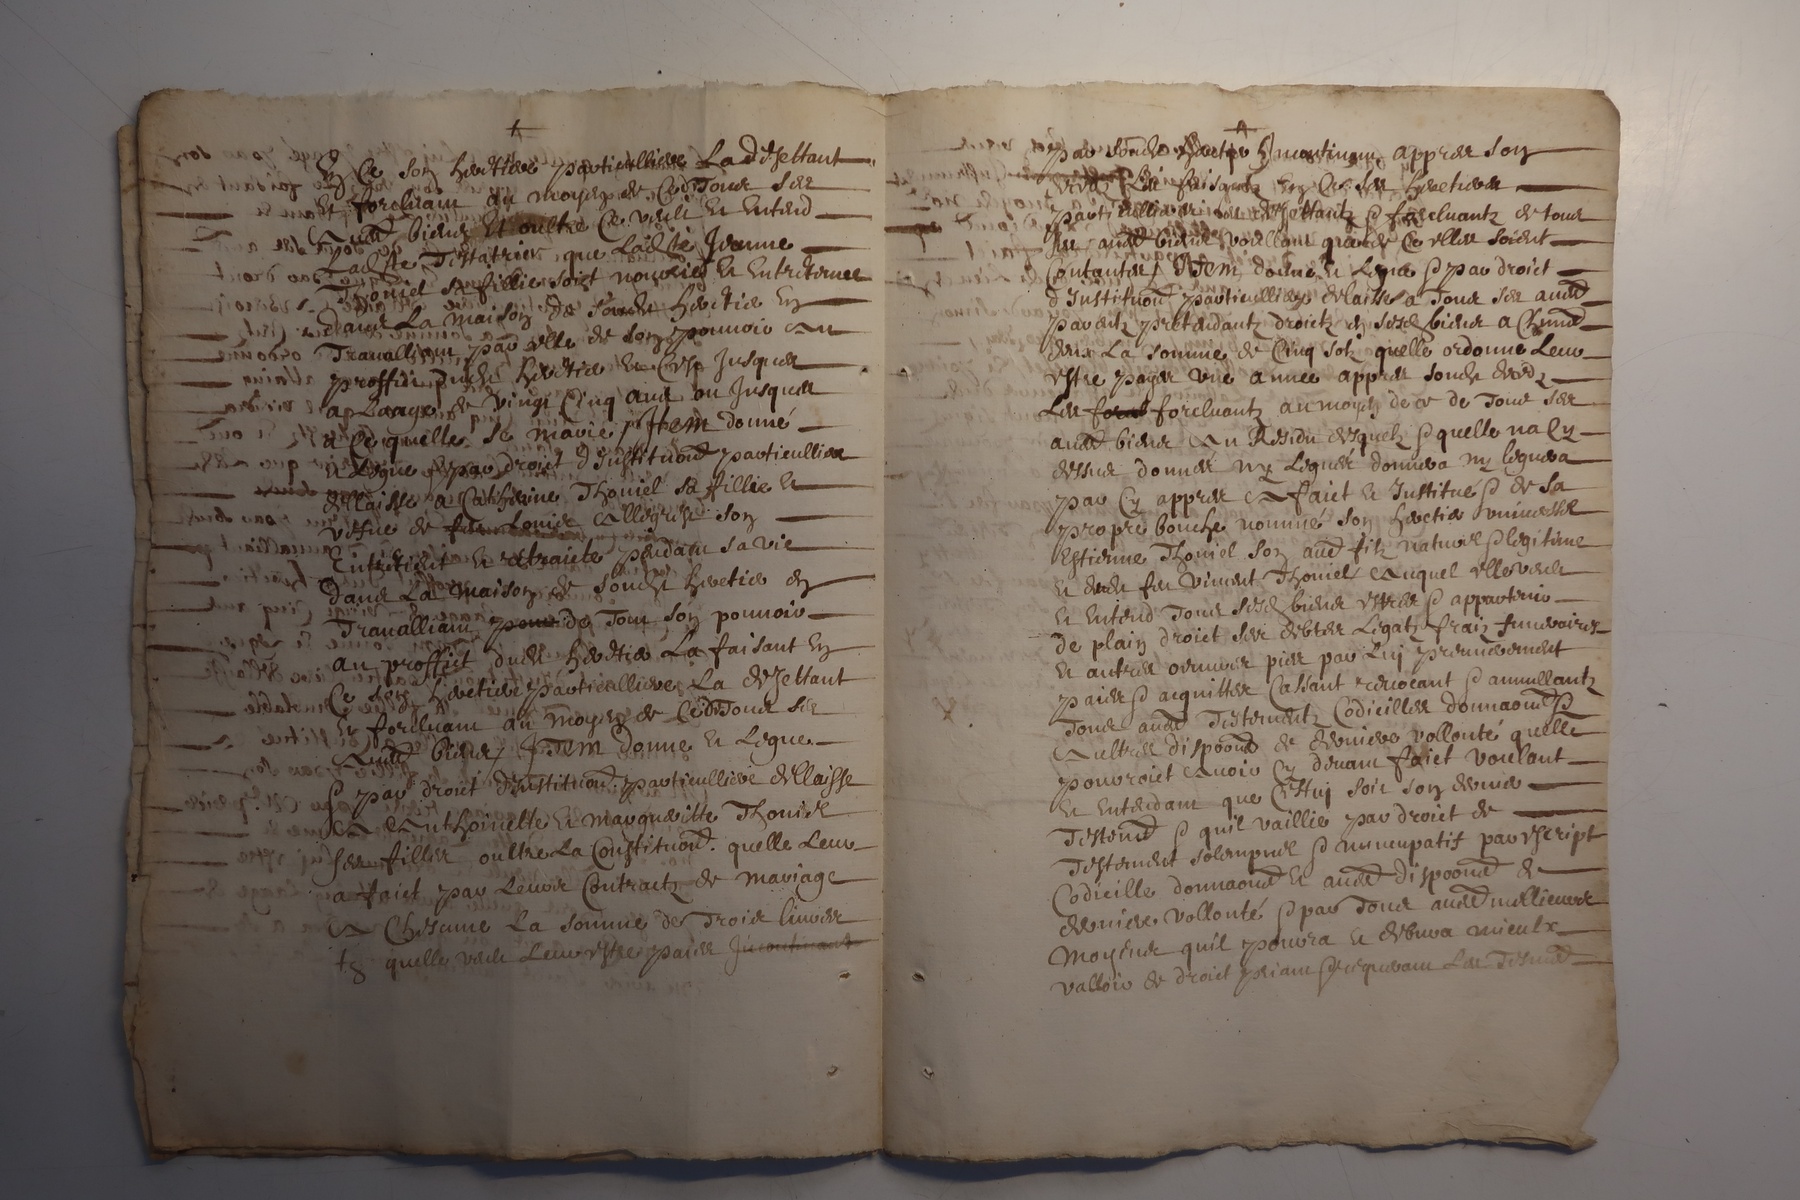 En Ce son heretiere particulliere La dejettant
Et forcluant au moyen de Ce de Tous ses
Aud biens Et oultre Ce veult Et Entend
Lad Testatrice que Lad Jeanne
Thoniel sa fillie soit nourrie Et Entretenue
dans La maison de sond heretier En
Travalliant par elle de son pouvoir Au
proffit dud heretier Et Ce Jusques
a Laage de vingt Cinq ans ou Jusques
a Ce quelle se marie / Item donné
Et Legue par droict d'Instituon particulliere
dellaisse a Catherine Thoniel sa fillie Et
vefue de feu Louis son
Entretient Et retraicte pendant sa vie
dans La maison de sond heretier En
Travalliant de Tout son pouvoir
au proffict dud heretier La faisant En
Ce son heretiere particulliere La dejettant
Et forcluant au moyen de Ce de Tous ses
Aud biens / Item donne Et Legue
& par droict d'Instituon particulliere dellaisse
A Anthoinette Et margueritte Thoniel
ses filles oultre La Constituon quelle Leur
a faict par Leurs Contractz de mariage
A Chescune La somme de Trois livres
quelle veut Leur estre paiee Incontinant
par sond heretier Incontinant appres son
deces Les faisant En Ce ses heretieres
particullieres Les dejettantz & forcluantz de tous
ses aud biens voullant que de Ce elles soient
Contantes / Item donne Et Legue & par droict
d'Instituon particulliere delaisse a Tous ses aud
parentz pretendantz droictz en sesd biens a Chund
deux La somme de Cinq solz quelle ordonne Leur
estre payes une annee appres sond deces
Les forcluantz au moyen de ce de Tous ses
aud biens Au Residu desquelz & quelle na Cy
dessus donnés ny Legués donnera ny leguera
par Cy appres A faict Et Institué & de sa
propre bouche nommé son heretier universel
Estienne Thoniel son aud filz naturel & legitime
Et dud feu Vincent Thoniel Auquel elle veut
Et Entend Tous sesd biens estre & appartenir
de plain droict ses debtes Legatz fraiz funeraires
Et autres oeuvres pies par Luy premierement
paiés & acquittes Cassant revocant & annullantz
Tous aud Testementz Codicilles donnaons &
Aultres dispoons de derniere vollonté quelle
pourroict Avoir Cy devant faict voulant
Et Entendant que Cestuy soit son dernier
Testemd & quil vaillie par droict de
Testement solempnel & nuncupatif par escript
Codicille donnaond Et aud dispoond de
derniere vollonté & par Tous aud meilleurs
moyens quil pourra Et debura mieulx
valloir de droict priant & requerant Les Tesmd